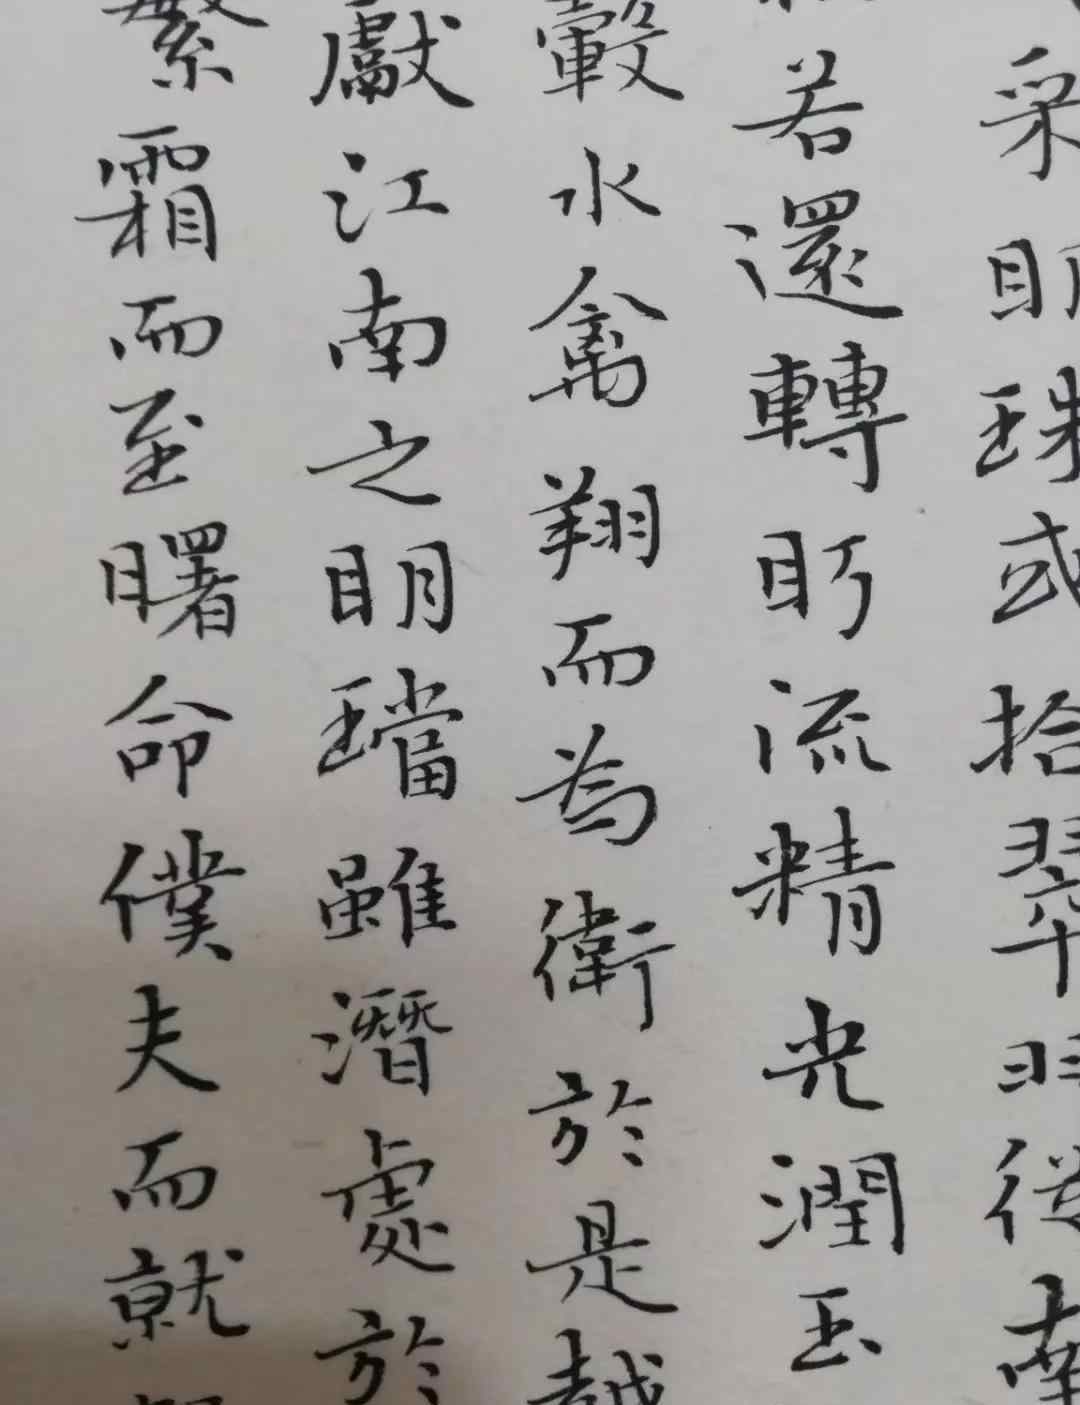 采明珠或拾翠羽從南
若還轉眄流精光潤玉
轂水禽翔而為衛於是越
獻江南之明璫雖潛處於
繁霜而至曙命僕夫而就